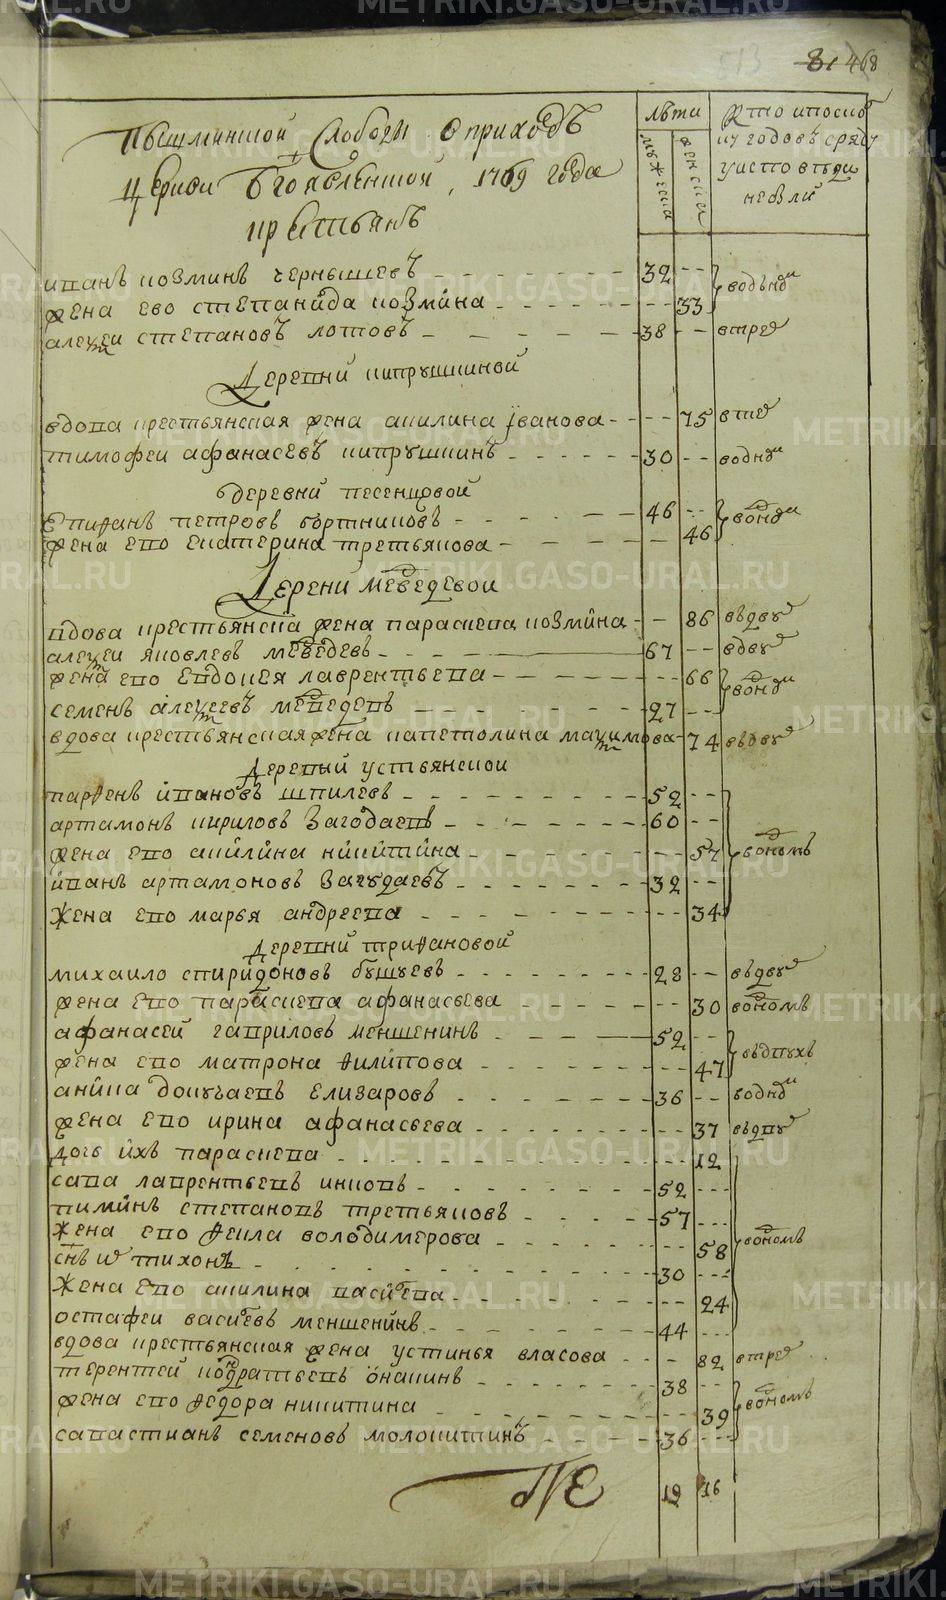 468
Пышминской Слободы о приходѣ
Церкви Бгоявленской, 1769 года
крестьянъ
лѣта
мужеска
женска
Кто колико
из годовъ сряду
у исповѣди
не были
иванъ козминъ чернышевъ 32
жена ево степанида козмина 33 водънои
алеѯеи степановъ лотовъ 38 втрех
Деревни кипрушкиной
вдова крестьянская жена акилина іванова 75
тимофеи афанасевъ кипрушкинъ 30 водной
деревни песенцовой
Епифанъ петровъ бортниковъ 46
жена ево екатерина третьякова 46 водной
Деревни медведевои
вдова крестьянска жена параскева козмина 86 вьдву
алеѯеи яковлевъ медведевъ 67 вдву
жена ево евдокея лаврентьева 66
семенъ алеѯеевъ медведевъ 27 водной
вдова крестьянская жена капетолина маѯимова 74 вьдву
Деревни устьянскои
парфенъ ивановъ шпилевъ 52
артамонъ кириловъ Загодаевъ 60
жена ево акилина никитина 57 водномъ
иванъ артамоновъ Загудаевъ 32
жена ево марья андреева 34
Деревни трифановой
михаило спиридоновъ бушуевъ 28 вьдву
жена ево параскева афанасьева 30 водномъ
афанасей гавриловъ меншенинъ 52
жена ево матрона филипова 47 вьдвухъ
аника Елизаровъ 36 водной
жена ево ирина афанасьева 37 вьдву
дочь ихъ параскева 12
сава лаврентьевъ 52
пиминъ степановъ третьяковъ 57
жена ево фекла володимерова 58 водномъ
снъ ѡ тихонъ 30
жена ево акилина васильева 24
остафеи васильевъ меншенинъ 44
вдова крестьянская жена устинья власова 82 втрех
терентей кондратьевъ онанинъ 38
жена ево федора никитина 39 водномъ
савастианъ семеновъ молокитинъ 36
19 16
METRIKI.GASO-URAL.RU